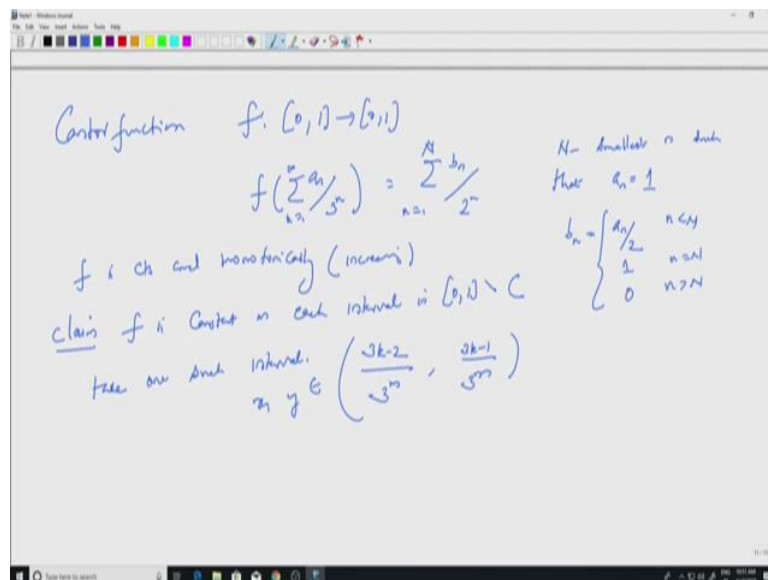 Note1 - Windows Journal
File Edit View Insert Actions Tools Help
Cantor function f: [0,1] → [0,1]
f(∑_{n=1}^{∞} a_n/3^n) = ∑_{n=1}^{N} b_n/2^n
N - smallest n such
that a_n = 1
b_n = { a_n/2 n<N
1 n=N
0 n>N
f is cts and monotonically (increasing)
claim f is constant on each interval in [0,1] \ C
take one such interval.
x, y ∈ ( 3k-2/3^m , 3k-1/3^m )
Type here to search
ENG